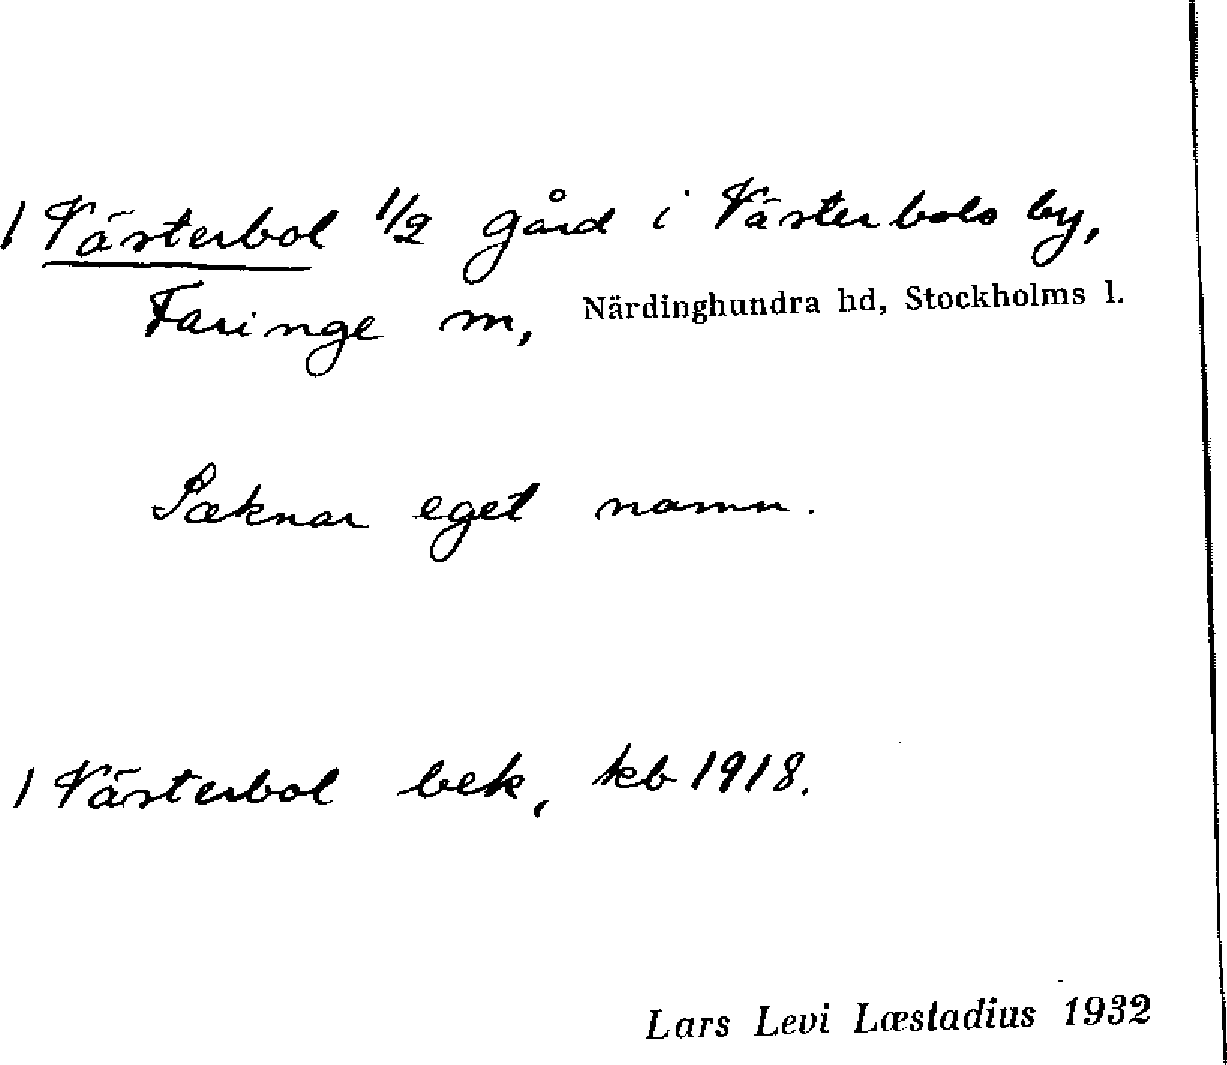 1 Västerbol 1/2 gård i Västerbols by,
Faringe sn, Närdinghundra hd, Stockholms l.
Saknar eget namn.
1 Västerbol bek, kb 1918.
Lars Levi Læstadius 1932